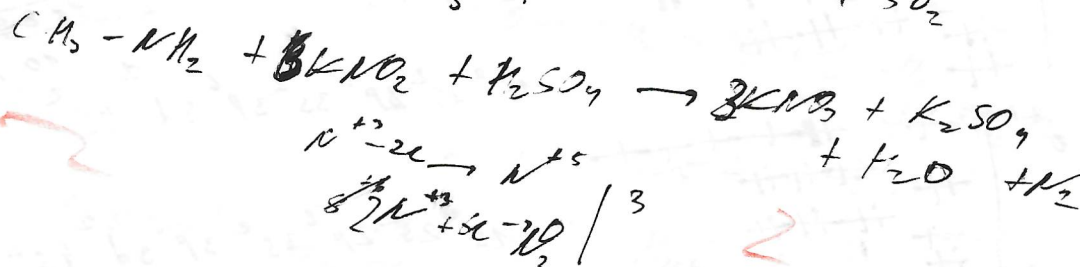 SO₂
CH₃ - NH₂ + KNO₂ + H₂SO₄ → 3KNO₃ + K₂SO₄
+ H₂O + N₂
N⁺³ -2e → N⁺⁵
2N⁺³ + 6e → N₂ | 3